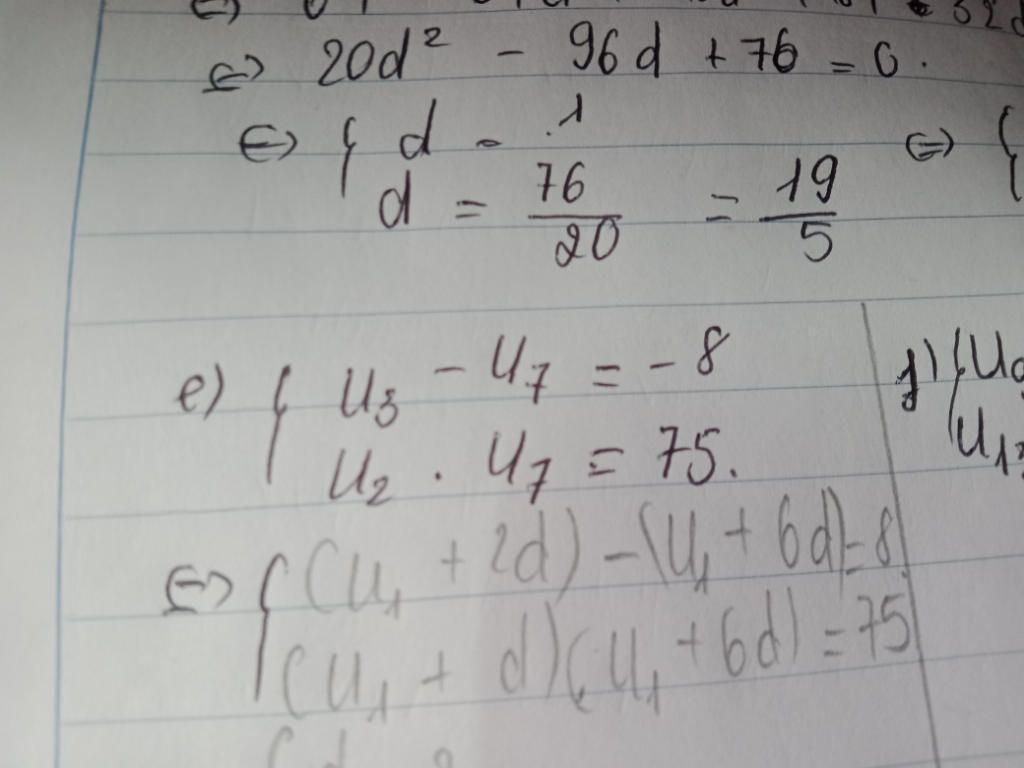 ⇔ 20d² - 96d + 76 = 0.
⇔ { d = 1
d = 76/20 = 19/5 ⇔ {
e) { u₃ - u₇ = -8
u₂ . u₇ = 75.
f) { u
u₁
⇔ { (u₁ + 2d) - (u₁ + 6d) = 8
(u₁ + d)(u₁ + 6d) = 75